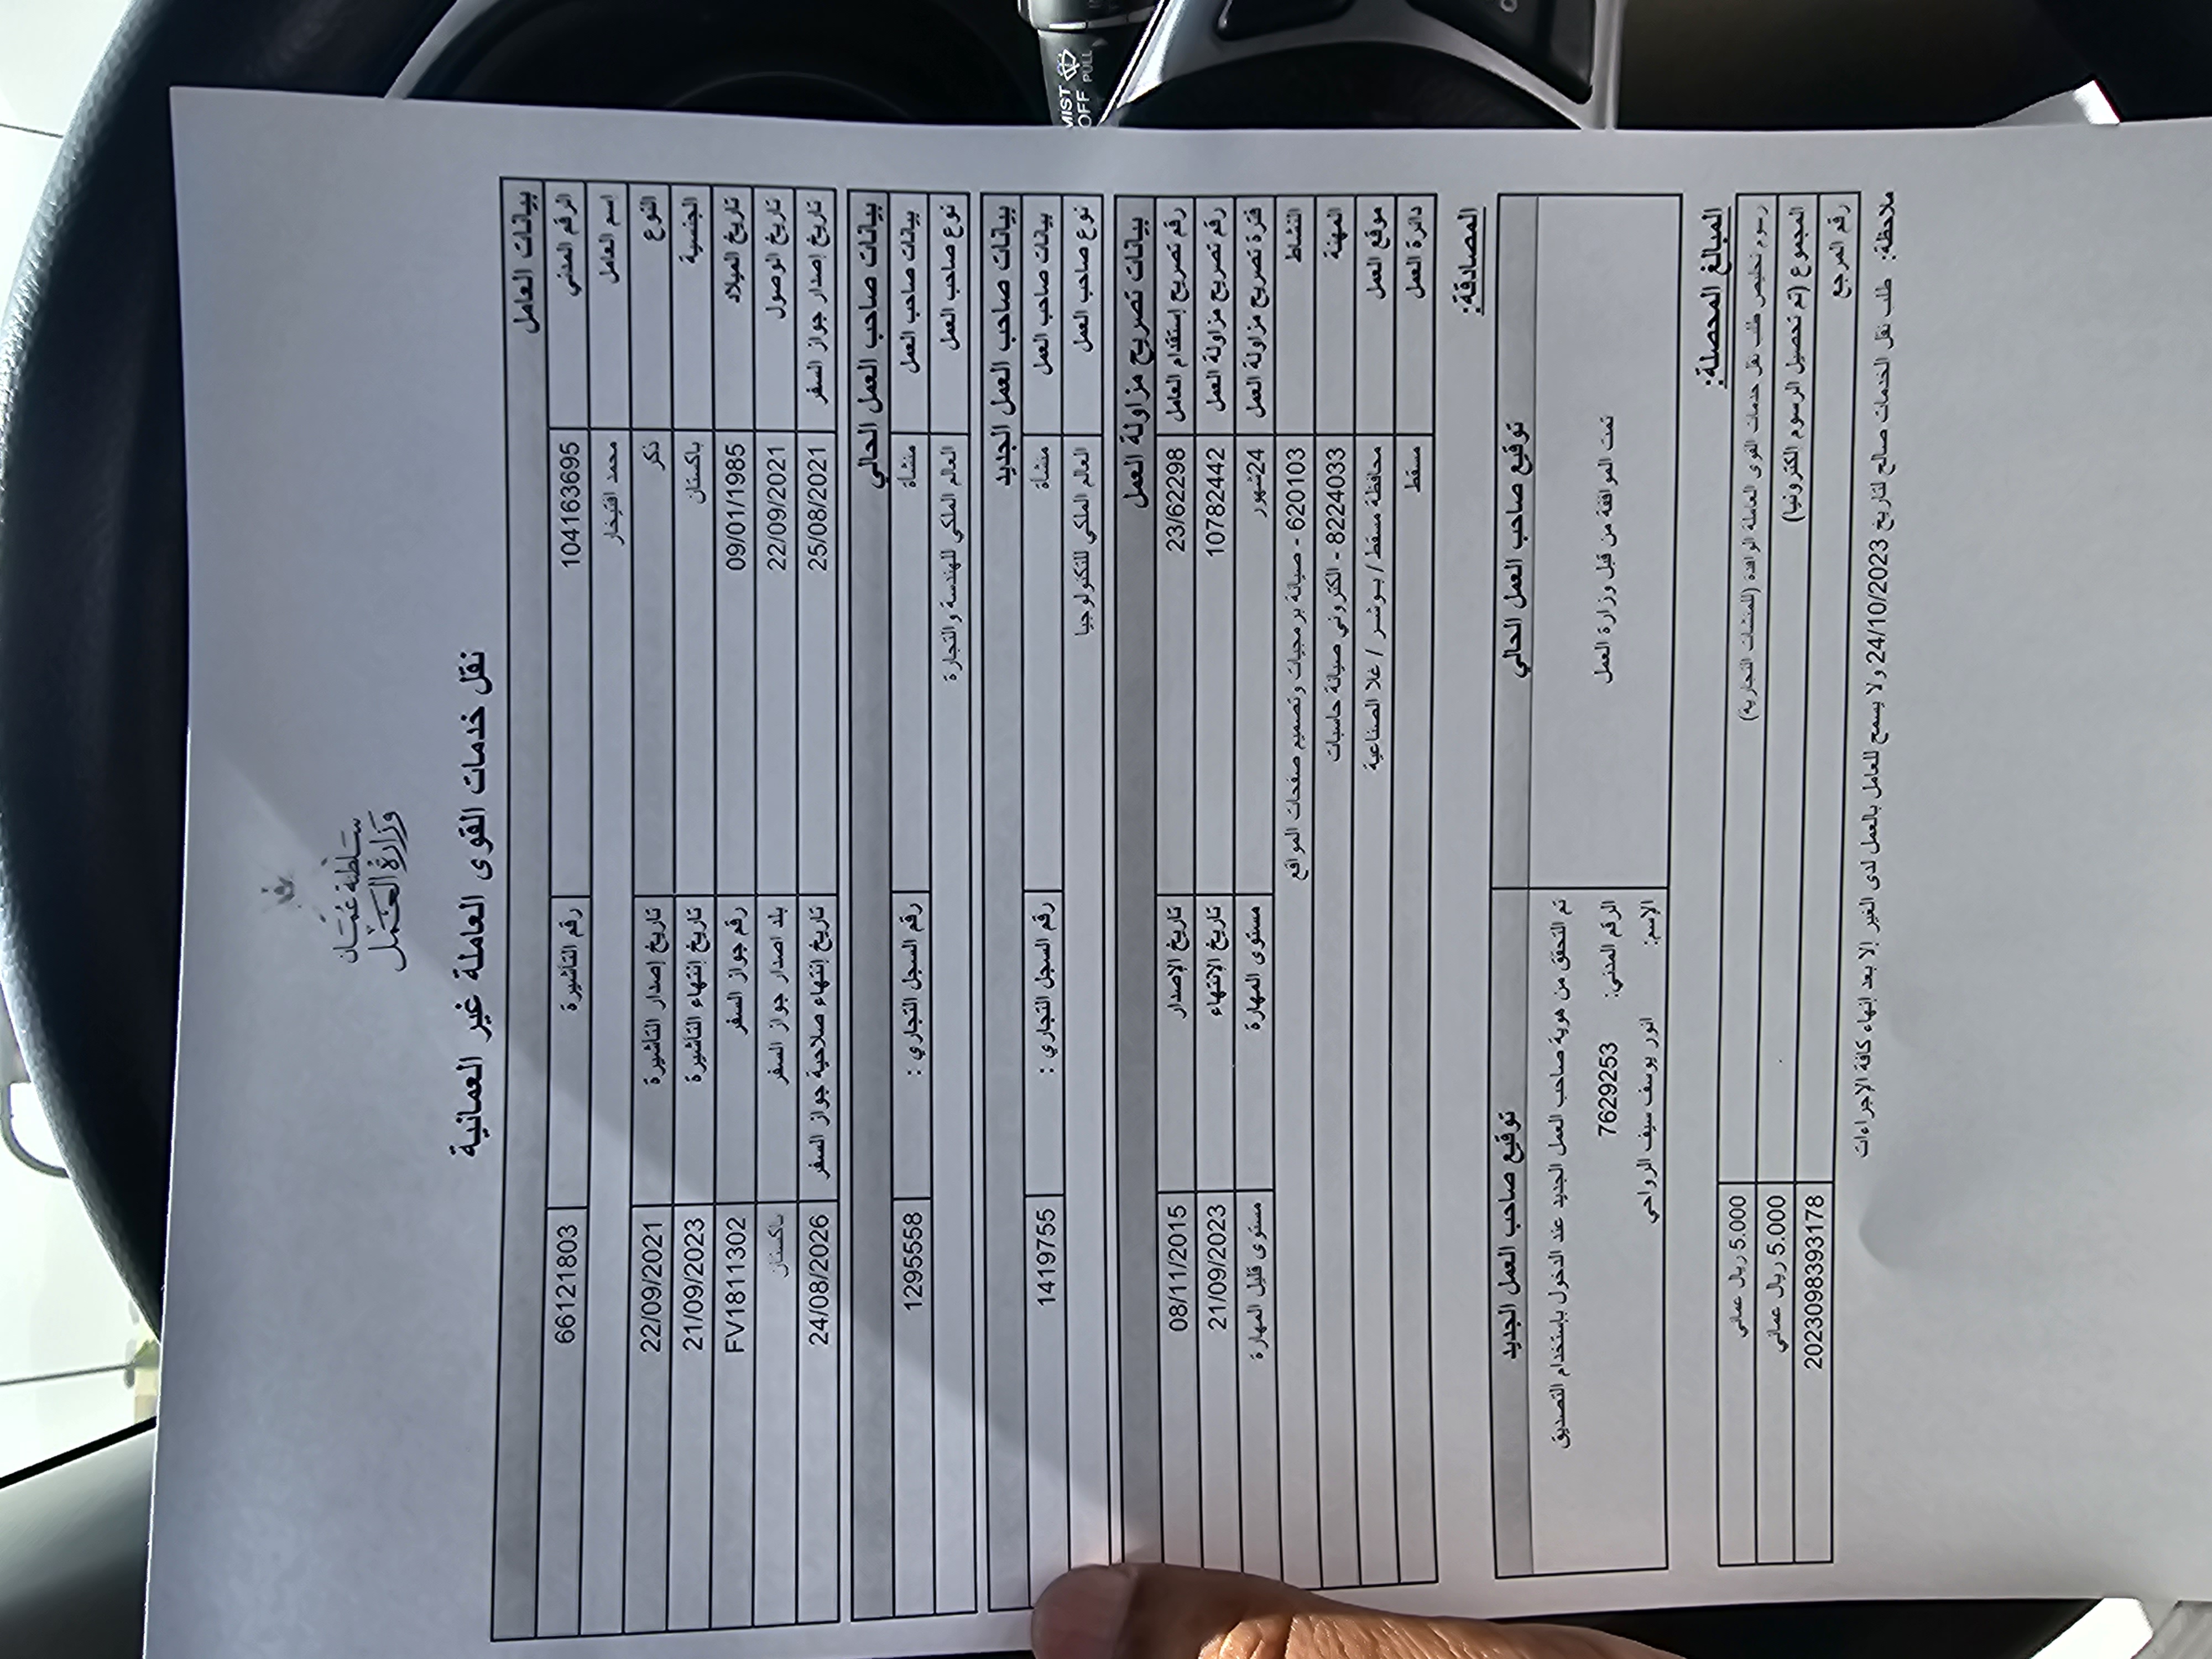 MIST
OFF PULL
سلطنة عمان
وزارة العمل
نقل خدمات القوى العاملة غير العمانية
بيانات العامل
الرقم المدني 104163695 رقم التأشيرة 66121803
اسم العامل محمد افتيخار
النوع ذكر تاريخ إصدار التأشيرة 22/09/2021
الجنسية باكستان تاريخ إنتهاء التأشيرة 21/09/2023
تاريخ الميلاد 09/01/1985 رقم جواز السفر FV1811302
تاريخ الوصول 22/09/2021 بلد اصدار جواز السفر باكستان
تاريخ إصدار جواز السفر 25/08/2021 تاريخ إنتهاء صلاحية جواز السفر 24/08/2026
بيانات صاحب العمل الحالي
بيانات صاحب العمل منشاة رقم السجل التجاري : 1295558
نوع صاحب العمل العالم الملكي للهندسة والتجارة
بيانات صاحب العمل الجديد
بيانات صاحب العمل منشاة رقم السجل التجاري : 1419755
نوع صاحب العمل العالم الملكي للتكنولوجيا
بيانات تصريح مزاولة العمل
رقم تصريح إستقدام العامل 23/62298 تاريخ الإصدار 08/11/2015
رقم تصريح مزاولة العمل 107824442 تاريخ الإنتهاء 21/09/2023
فترة تصريح مزاولة العمل 24شهور مستوى المهارة مستوى قليل المهارة
النشاط 620103 - صيانة برمجيات وتصميم صفحات المواقع
المهنة 8224033 - الكتروني صيانة حاسبات
موقع العمل محافظة مسقط / بوشر / غلا الصناعية
دائرة العمل مسقط
المصادقة:
توقيع صاحب العمل الحالي توقيع صاحب العمل الجديد
تمت الموافقة من قبل وزارة العمل
تم التحقق من هوية صاحب العمل الجديد عند الدخول بإستخدام التصديق
الرقم المدني: 7629253
الإسم: انور يوسف سيف الرواحي
المبالغ المحصلة:
رسوم تخليص طلب نقل خدمات القوى العاملة الوافدة (للمنشات التجارية) 5.000 ريال عماني
المجموع (تم تحصيل الرسوم الكترونيا) 5.000 ريال عماني
رقم المرجع 2023098393178
ملاحظة: طلب نقل الخدمات صالح لتاريخ 24/10/2023 ولا يسمح للعامل بالعمل لدى الغير إلا بعد إنهاء كافة الإجراءات